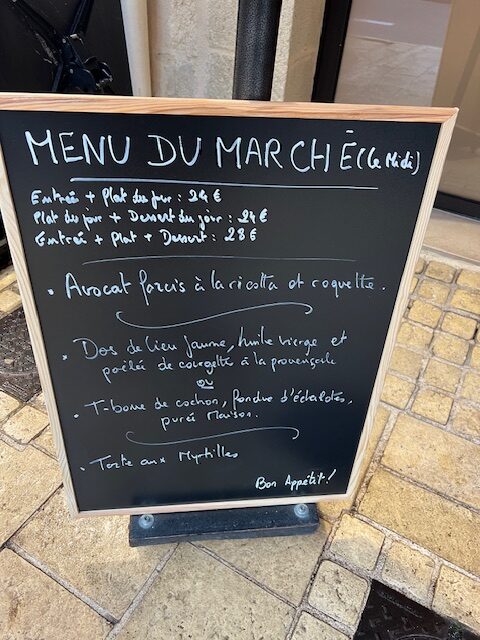 MENU DU MARCHÉ (Le Midi)
Entrée + Plat du jour : 24 €
Plat du jour + Dessert du jour : 24 €
Entrée + Plat + Dessert : 28 €
• Avocat farcis à la ricotta et roquette.
• Dos de lieu jaune, huile vierge et
poêlée de courgette à la provençale
ou
• T-bone de cochon, fondue d'échalotes,
purée Maison.
• Tarte aux Myrtilles
Bon Appétit !